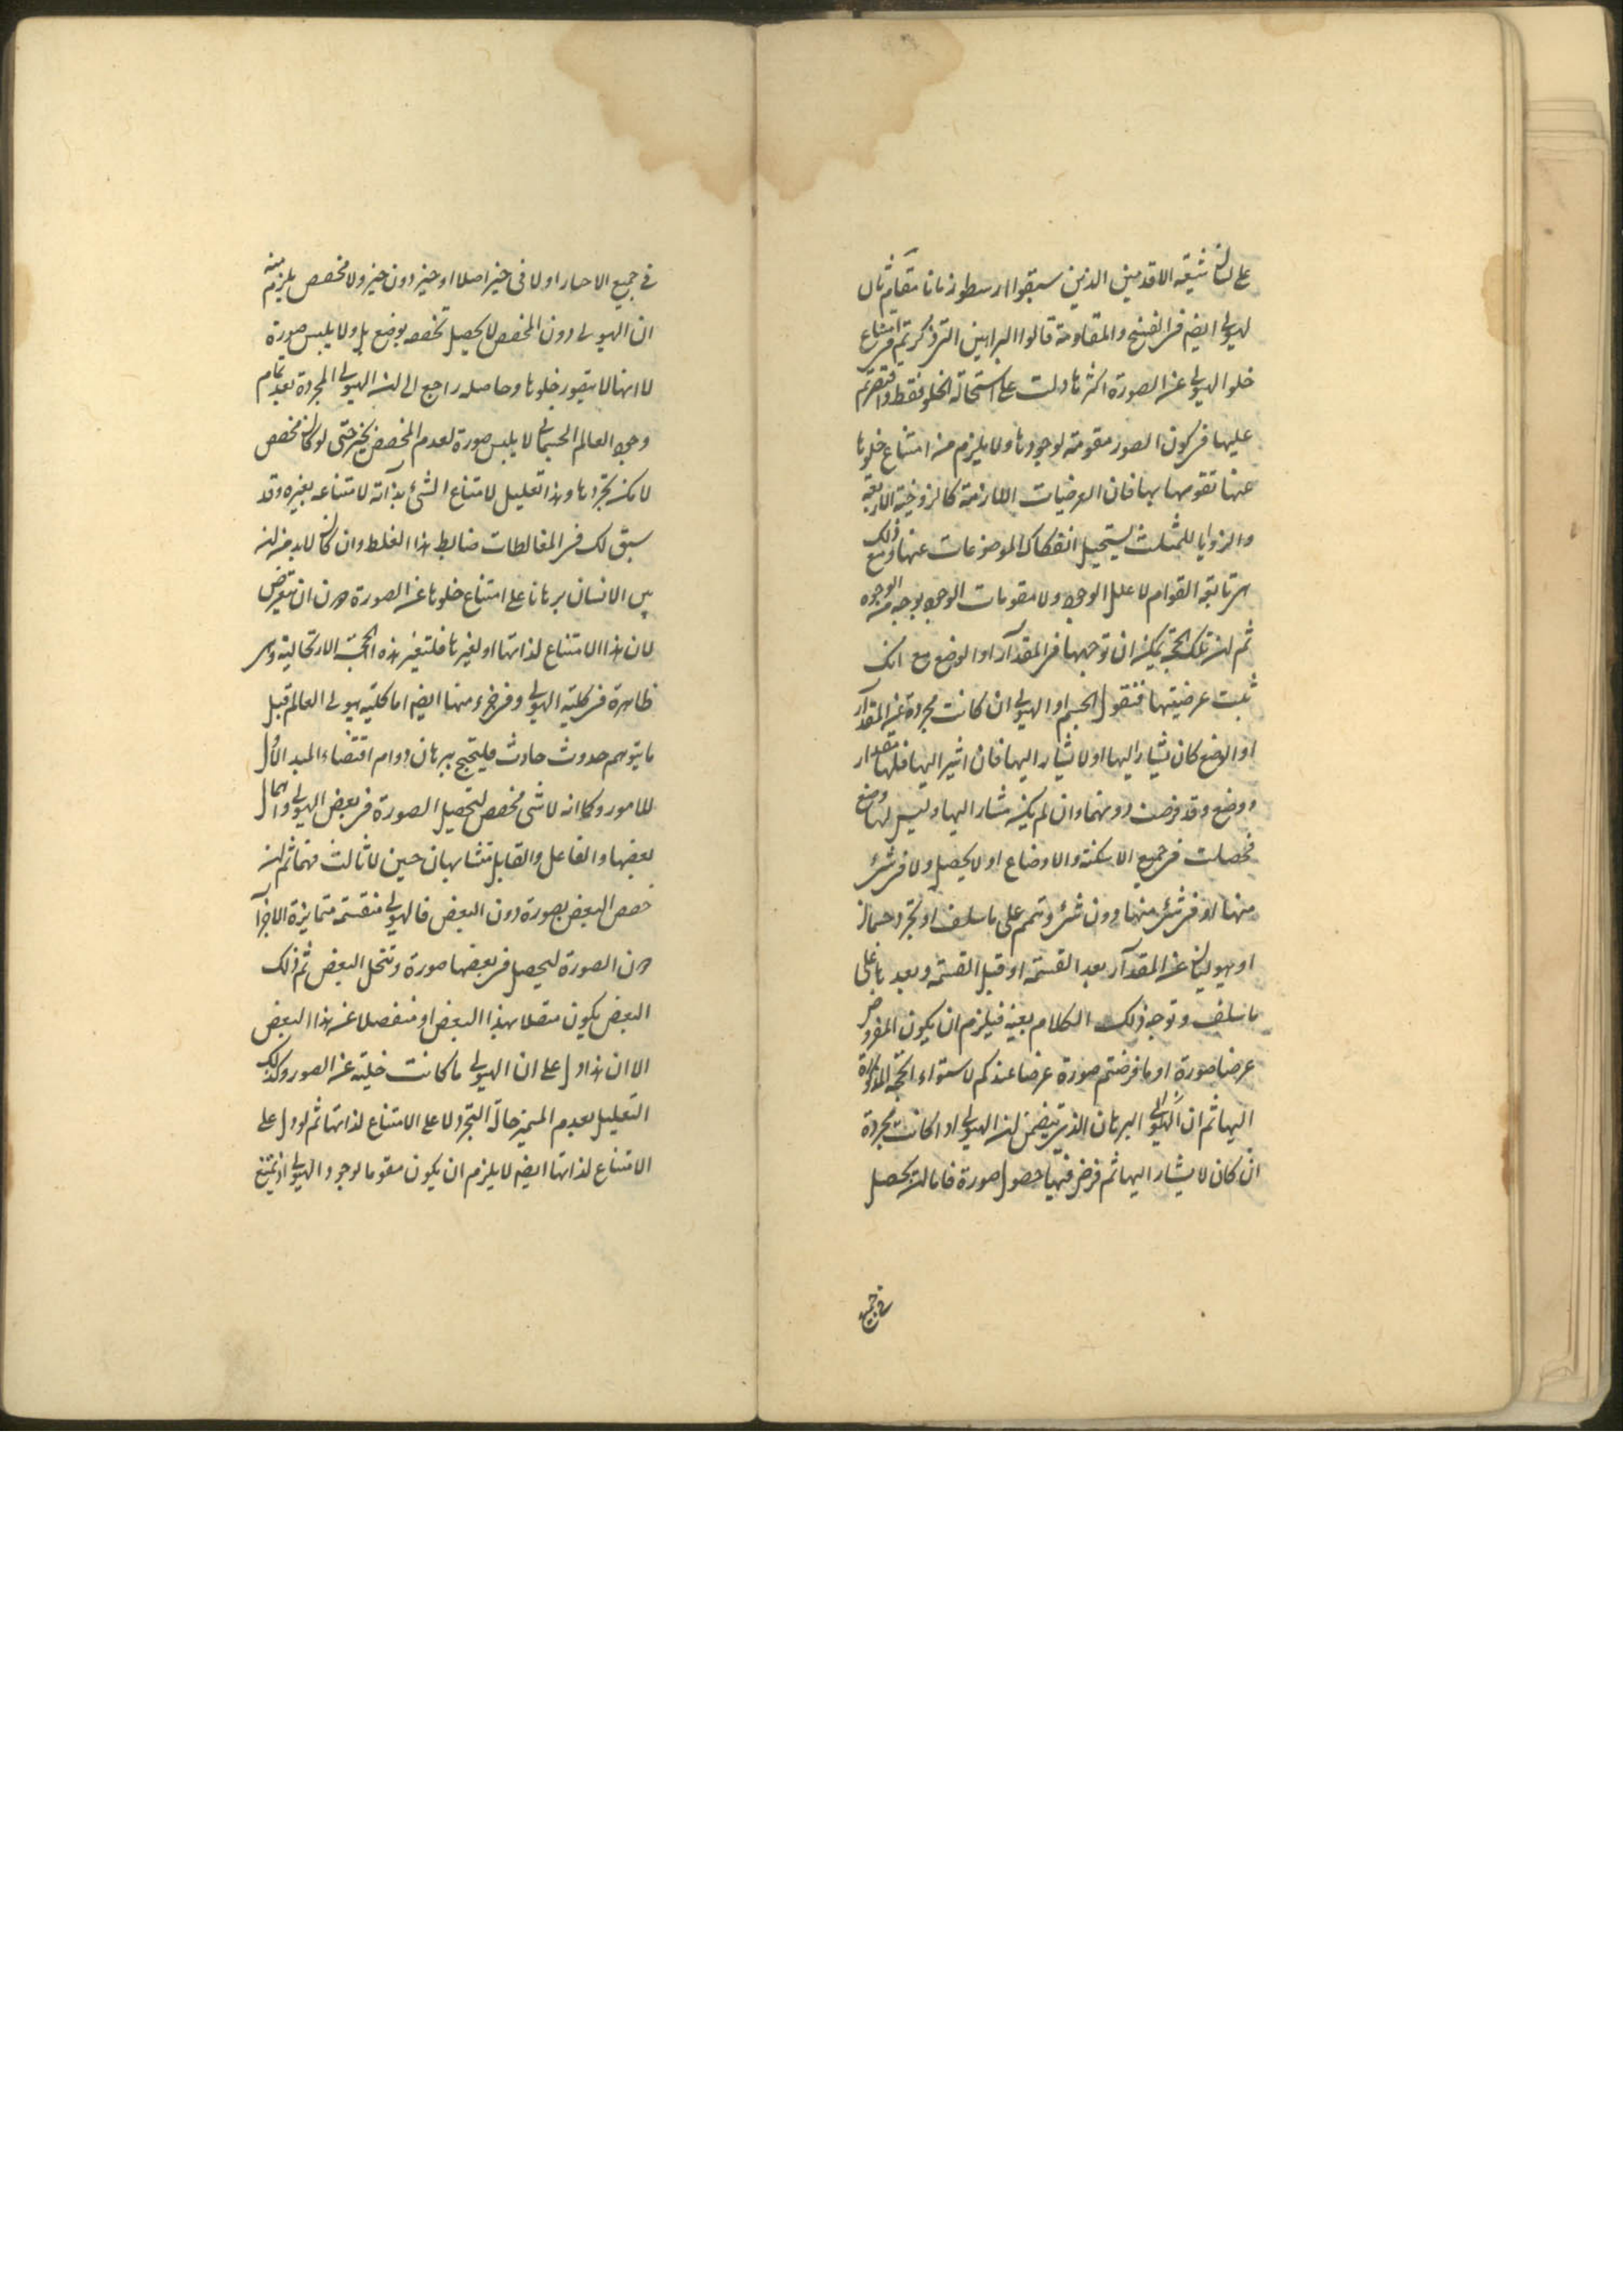 على لسان شيعة الاقدمين الذين سبقوا ارسطو زمانا متقادم ثال
لهيولى ايضه فى النضج والمقاومة قالوا البراهين التى ذكرتم فى امتناع
خلو الهيولى عن الصورة اكثرها دلت على استحالة الخلو فقط واقتصرتم
عليها فى كون الصور مقومة لوجودها ولا يلزم من امتناع خلوها
عنها تقومها بها فان العرضيات اللازمة كالزوجية للاربعة
والزوايا للمثلث يستحيل انفكاك الموضوعات عنها ومع ذلك
هى تابعة القوام لا علل الوجود ولا مقومات الوجود بوجه من الوجوه
ثم ان تلك الحجة يمكن ان توجهها فى المقدار او الوضع مع انك
ثبت عرضيتها فنقول الجسم او الهيولى ان كانت مجردة عن المقدار
او الوضع كان يشار اليها او لا يشار اليها فان اشير اليها فلها مقدار
ووضع وقد فرضت دونهما وان لم يكن مشار اليها وليس لها وضع
فحصلت فى جميع الامكنة والاوضاع او لا يحصل ولا فى شئ
منها او فى شئ منها دون شئ وتمم على ما سلف او تجرد جسمان
او هيوليان عن المقدار بعد القسمة او قبل القسمة وبعدها على
ما سلف وتوجه ذلك الكلام بعينه فيلزم ان يكون المفروض
عرضا صورة او ما فرضتم صورة عرضا عندكم لاستواء الحجة المذكورة
اليها ثم ان البرهان الذى يتضمن ان الهيولى اذا كانت مجردة
ان كان لا يشار اليها ثم فرض فيها حصول صورة فاما ان يحصل
فى جميع
فى جميع الاحياز اولا فى حيز اصلا او حيز دون حيز ولا مخصص يلزم منه
ان الهيولى دون المخصص لا يحصل تخصصه بوضع بل ولا يلبس صورة
لا انها لا يتصور خلوها وحاصله راجع الى ان الهيولى المجردة بعد تمام
وجود العالم الجسمانى لا يلبس صورة لعدم المخصص بحيز حتى لو كان مخصص
لامكن تجردها وهذا تعليل لامتناع الشئ بذاته لامتناعه بغيره وقد
سبق لك فى المغالطات ضابط هذا الغلط وان كان لا بد من ان
الانسان برهانا على امتناع خلوها عن الصورة دون ان يتعرض
لان هذا الامتناع لذاتها او لغيرها فلتغير هذه الحجة
ظاهرة فى كلية الهيولى وفى جزء منها ايضه اما كلية هيولى العالم قبل
ما يتوهم حدوث حادث فليحتج ببرهان دوام اقتضاء المبدا الاول
للامور وكما انه لا شئ مخصص لتحصيل الصورة فى بعض الهيولى واهمال
بعضها والفاعل والقابل متشابهان حين لا ثالث فيهما ثم ان
خصص البعض بصورة دون البعض فالهيولى منقسمة متمايزة الاجزا
دون الصورة ليحصل فى بعضها صورة وتخلى البعض ثم ذلك
البعض يكون متصلا بهذا البعض او منفصلا عن هذا البعض
الا ان هذا دل على ان الهيولى ما كانت خلية عن الصور وكذلك
التعليل بعدم المميز حالة التجرد لا على الامتناع لذاتها ثم لو دل على
الامتناع لذاتها ايضه لا يلزم ان يكون مقوما لوجود الهيولى اذ يمتنع